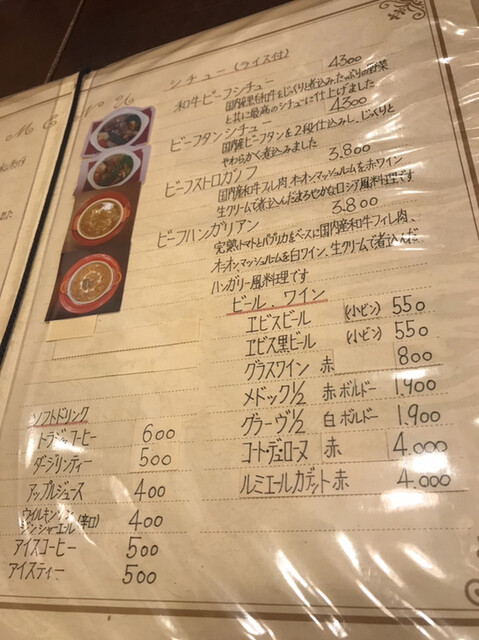 MENU
シチュー(ライス付)
和牛ビーフシチュー 4300
国内産黒毛和牛をじっくりと煮込み、たっぷりの野菜
と共に最高のシチューに仕上げました
ビーフタンシチュー 4300
国内産ビーフタンを2段仕込みし、じっくりと
やわらかく煮込みました
ビーフストロガノフ 3.800
国内産和牛フィレ肉、オニオンマッシュルームを赤ワイン
生クリームで煮込んだまろやかなロシア風料理です
ビーフハンガリアン 3.800
完熟トマトとパプリカをベースに国内産和牛フィレ肉、
オニオンマッシュルームを白ワイン、生クリームで煮込んだ
ハンガリー風料理です
ビール、ワイン
ヱビスビール (小ビン) 550
ヱビス黒ビール (小ビン) 550
グラスワイン 赤 800
メドック1/2 赤 ボルドー 1.900
グラーヴ1/2 白 ボルドー 1.900
コート・デュ・ローヌ 赤 4.000
ルミエールカデット 赤 4.000
ソフトドリンク
トラジャコーヒー 600
ダージリンティー 500
アップルジュース 400
ウイルキンソン
ジンジャーエール (辛口) 400
アイスコーヒー 500
アイスティー 500